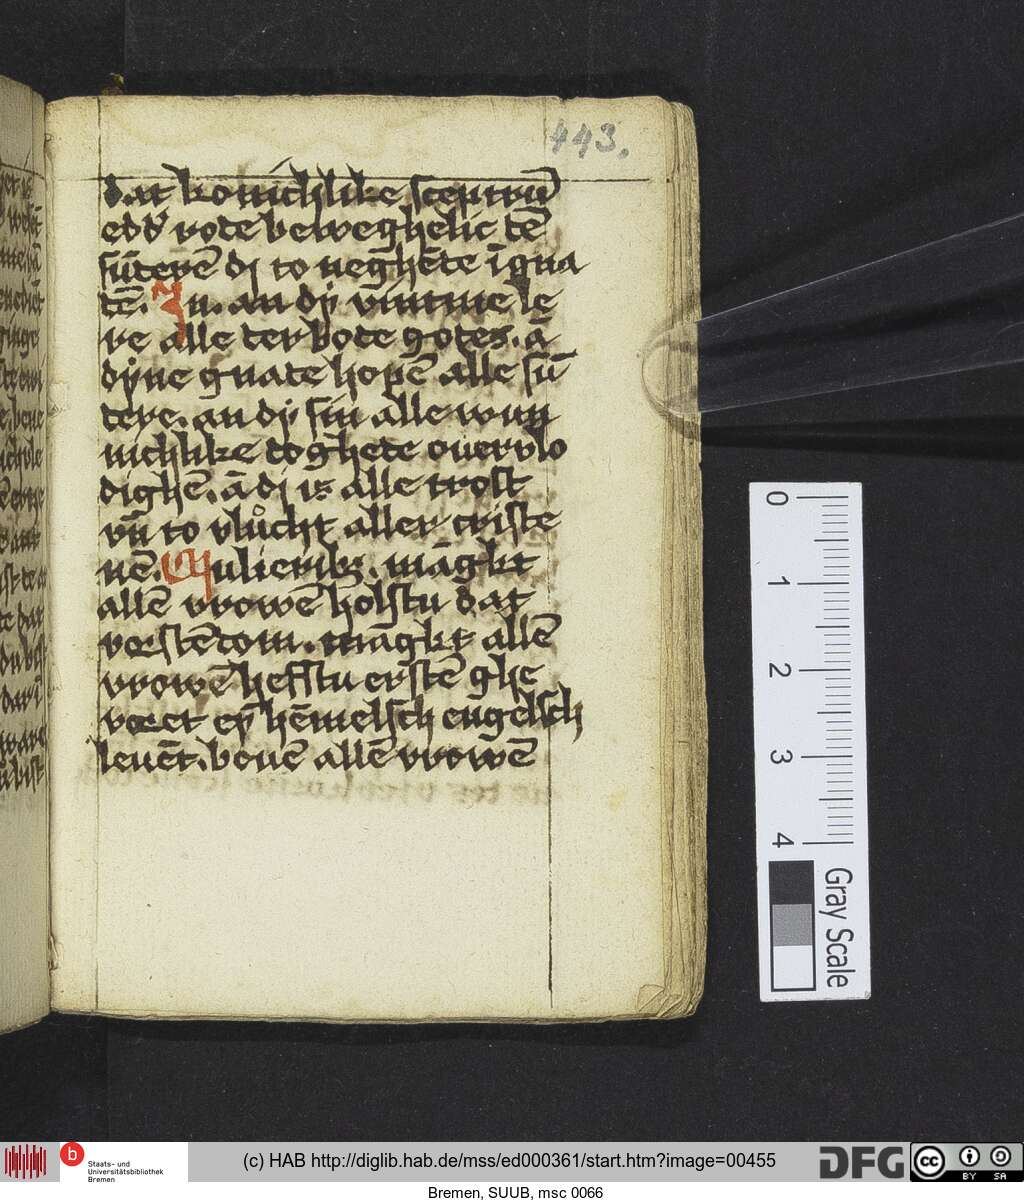 443.
dat konichlike sceptrū
edd' rote beweghelic tē
sūterē di to neghēte īgna
tē. Jn. an dy vintme le
re alle ter bote gotes. ā
dyne gnate hopē alle sū
tere. an dy sin alle wun
nichlike doghete ouervlo
dighē. ā di is alle trost
vn̄ to vlůcht aller criste
nē. Mulierib9. māgkt
allē vrowē holstu dat
verstēdom. māgkt allē
vrowē hefstu erstē ghe
voret eȳ hēmelsch engelsch
leuēt. bouē allē vrowē
0
1
2
3
4
Gray Scale
b
Staats- und
Universitätsbibliothek
Bremen
(c) HAB http://diglib.hab.de/mss/ed000361/start.htm?image=00455
DFG
cc
BY SA
Bremen, SUUB, msc 0066